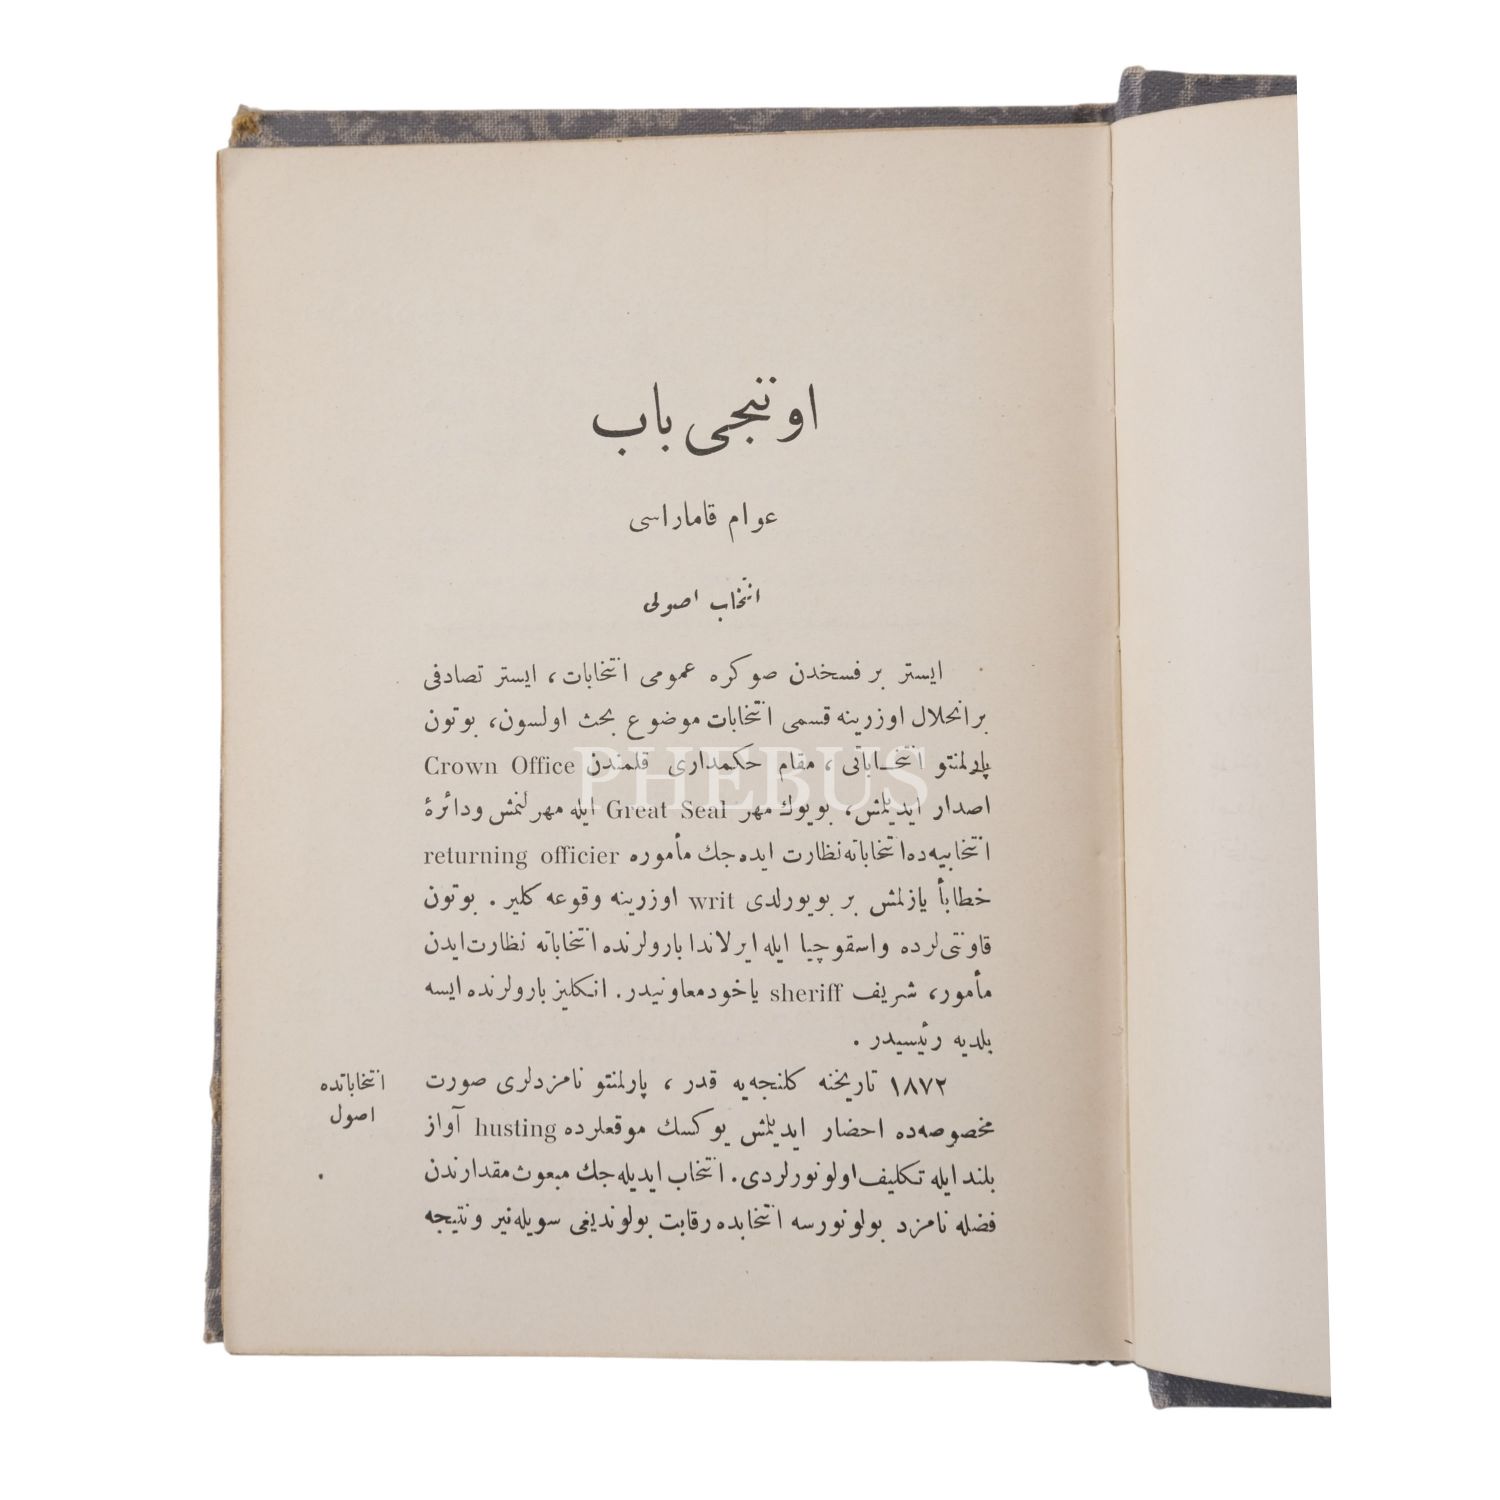 اوننجی باب
عوام قاماراسی
انتخاب اصولی
ایستر بر فسخدن صوکره عمومی انتخابات، ایستر تصادفی
بر انحلال اوزرینه قسمی انتخابات موضوع بحث اولسون، بوتون
پارلمنتو انتخـاباتی، مقام حکمداری قلمندن Crown Office
اصدار ایدیلمش، بویوك مهر Great Seal ایله مهرلنمش ودائرهٔ
انتخابیه‌ده انتخاباته نظارت ایده‌جك مأموره returning officier
خطاباً یازلمش بر بویورلدی writ اوزرینه وقوعه کلیر. بوتون
قاونتی‌لرده واسقوچیا ایله ایرلاندا بارولرنده انتخاباته نظارت ایدن
مأمور، شریف sheriff یاخود معاونیدر. انکلیز بارولرنده ایسه
بلدیه رئیسیدر.
۱۸۷۲ تاریخنه کلنجه‌یه قدر، پارلمنتو نامزدلری صورت
مخصوصه‌ده احضار ایدیلمش یوکسك موقعلرده husting آواز
بلند ایله تکلیف اولونورلردی. انتخاب ایدیله‌جك مبعوث مقدارندن
فضله نامزد بولونورسه انتخابده رقابت بولوندیغی سویله‌نیر ونتیجه
انتخاباتده
اصول
PHEBUS